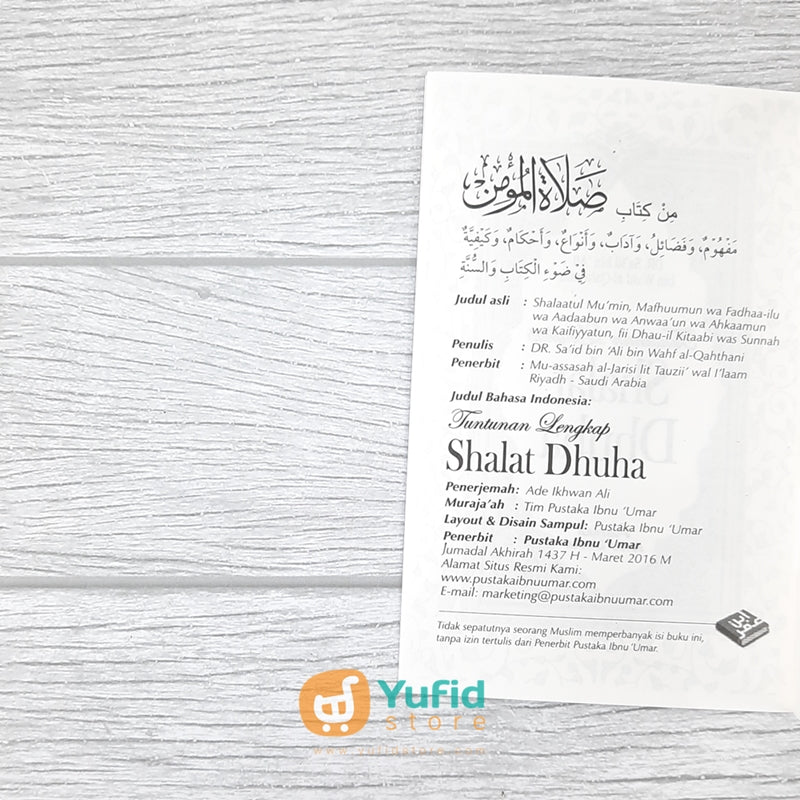 مِنْ كِتَابِ صَلَاةُ الْمُؤْمِنِ
مَفْهُوْمٌ، وَفَضَائِلُ، وَآدَابٌ، وَأَنْوَاعٌ، وَأَحْكَامٌ، وَكَيْفِيَّةٌ
فِيْ ضَوْءِ الْكِتَابِ وَالسُّنَّةِ
Judul asli : Shalaatul Mu'min, Mafhuumun wa Fadhaa-ilu
wa Aadaabun wa Anwaa'un wa Ahkaamun
wa Kaifiyyatun, fii Dhau-il Kitaabi was Sunnah
Penulis : DR. Sa'id bin 'Ali bin Wahf al-Qahthani
Penerbit : Mu-assasah al-Jarisi lit Tauzii' wal I'laam
Riyadh - Saudi Arabia
Judul Bahasa Indonesia:
Tuntunan Lengkap
Shalat Dhuha
Penerjemah: Ade Ikhwan Ali
Muraja'ah : Tim Pustaka Ibnu 'Umar
Layout & Disain Sampul: Pustaka Ibnu 'Umar
Penerbit : Pustaka Ibnu 'Umar
Jumadal Akhirah 1437 H - Maret 2016 M
Alamat Situs Resmi Kami:
www.pustakaibnuumar.com
E-mail: marketing@pustakaibnuumar.com
Tidak sepatutnya seorang Muslim memperbanyak isi buku ini,
tanpa izin tertulis dari Penerbit Pustaka Ibnu 'Umar.
Yufid
store
www.yufidstore.com